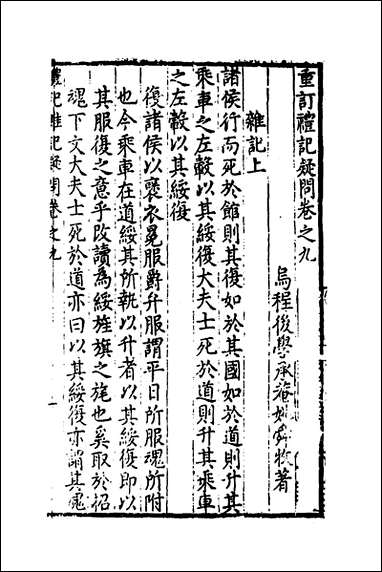 重訂禮記疑問卷之九
烏程後學承菴姚舜牧著
雜記上
諸侯行而死於館則其復如於其國如於道則升其
乘車之左轂以其綏復大夫士死於道則升其乘車
之左轂以其綏復
復諸侯以褒衣冕服爵弁服謂平日所服魂所附
也今乘車在道綏其所執以升者以其綏復即以
其服復之意乎改讀為緌旌旗之旄也奚取於招
魂下文大夫士死於道亦曰以其綏復亦謂其鬼
禮記雜記疑問卷之九
一